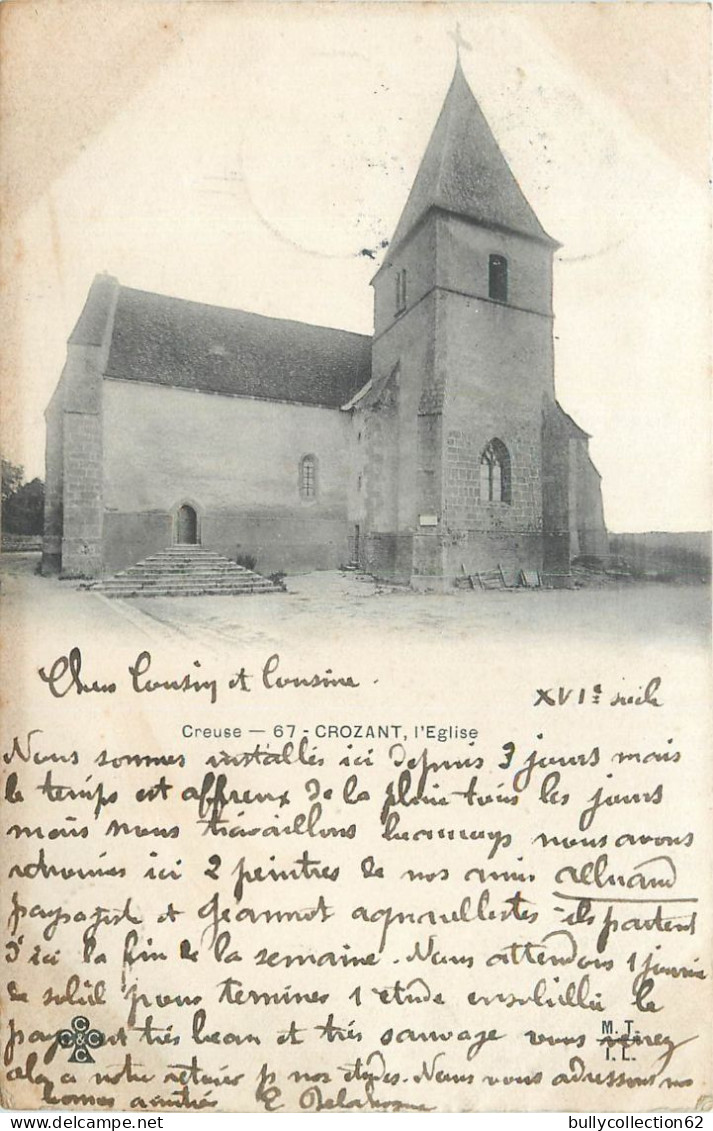 Chers Cousin et Cousine.
XVIe siècle
Creuse — 67 - CROZANT, l'Eglise
Nous sommes installés ici depuis 3 jours mais
le temps est affreux de la pluie tous les jours
mais nous travaillons beaucoup nous avons
retrouvés ici 2 peintres de nos amis
paysagiste et Jeannot aquarellestes - ils partent
d'ici à la fin de la semaine. Nous attendons 1 journée
de soleil pour terminer 1 étude ensoleillé le
pays est très beau et très sauvage vous verrez
M. T.
I. L.
C C C & C
cela a notre retour p nos études. Nous vous adressons nos
bonnes amitiés E
bullycollection62